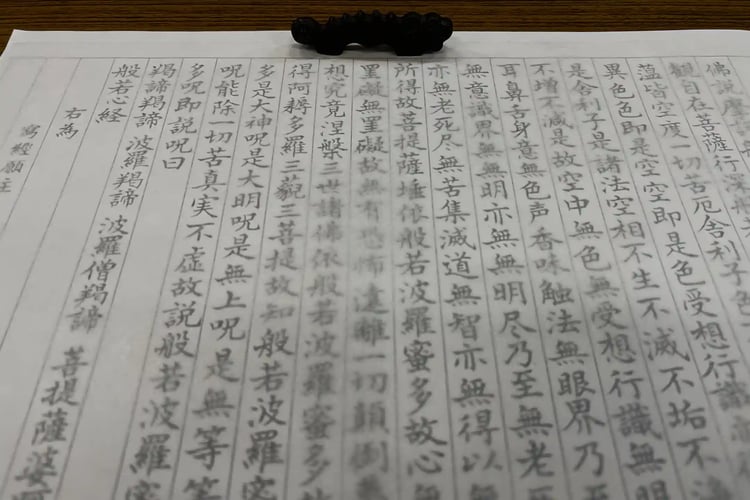 佛説
観自在菩薩行深般
蘊皆空度一切苦厄舎利子色
異色色即是空空即是色受想行識
是舎利子是諸法空相不生不滅不垢不
不増不減是故空中無色無受想行識無
耳鼻舌身意無色声香味触法無眼界乃
無意識界無無明亦無無明尽乃至無老
亦無老死尽無苦集滅道無智亦無得以無
所得故菩提薩埵依般若波羅蜜多故心無
罣礙無罣礙故無有恐怖遠離一切顛倒
想究竟涅槃三世諸佛依般若波羅蜜多故
得阿耨多羅三藐三菩提故知般若波羅蜜
多是大神呪是大明呪是無上呪是無等等
呪能除一切苦真実不虚故説般若波羅蜜
多呪即説呪曰
羯諦羯諦 波羅羯諦 波羅僧羯諦 菩提薩婆
般若心経
右為
寫經願主